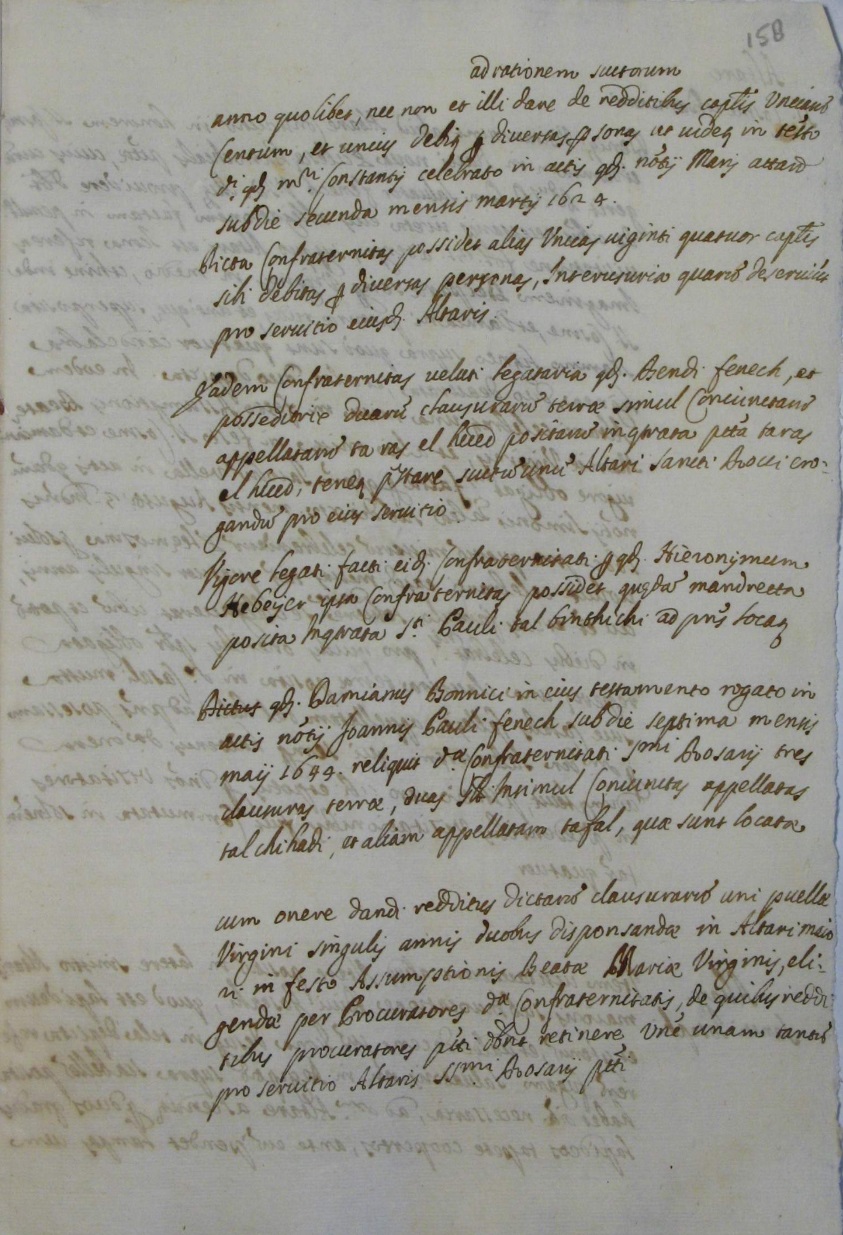 158
ad rationem scutorum
anno quolibet, nec non et illi dare de redditibus captis Unciarũ
Centum, et unciis debiq ꝑ diversas ꝑsonas ut videq in testo
dⁱ qd. mʳⁱ Constantij celebrato in actis qd. notij Marij attard
sub die secunda mensis martij 1624.
Dicta Confraternitas possidet alias Uncias viginti quatuor captis
sibi debitas ꝑ diversas personas,
pro servitio eiusd. Altaris.
Eadem Confraternitas veluti legataria qd. Bendi fenech, et
posseditrix duarũ clausurarũ terræ simul Coniunctarũ
appellatarũ ta ras el hued positarũ in qtrata ptta ta ras
el hued, teneq pstare scutũ unũ Altari sancti Rocci ero-
gandũ pro eius servitio.
Vigore legati facti eid. Confraternitati ꝑ qd. Hieronymum
Xebeijer ipsa Confraternitas possidet quędã mandrecta
posita In qtrata Sᵗⁱ Pauli tal ad pns̃ locaq
Dictus qd. Damianus Bonnici in eius testamento rogato in
actis notij Joannis Pauli fenech sub die septima mensis
maij 1644. reliquit dᵃ Confraternitati Sᵐⁱ Rosarij tres
clausuras terræ, duas Insimul Coniunctas appellatas
tal chihadi, et aliam appellatam tafal, quæ sunt locatæ
cum onere dandi redditus dictarũ clausurarũ uni puellæ
Virgini singulis annis duobus disponsandæ in Altari maio
ri in festo Assumptionis Beatæ Mariæ Virginis, eli-
gendæ per Procuratores dᵃ Confraternitatis, de quibus reddi
tibus procuratores ptti dbnt retinere Unc̃ unam tantũ
pro servitio Altaris SSᵐⁱ Rosarij ptti